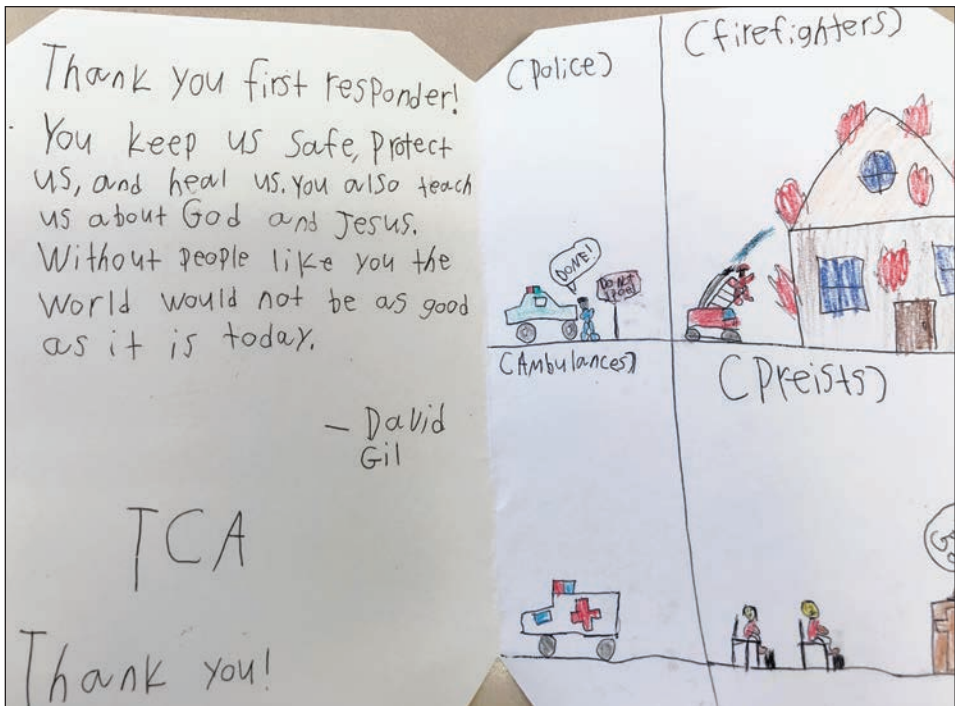 Thank you first responder!
You keep us safe, protect
us, and heal us. You also teach
us about God and Jesus.
Without people like you the
world would not be as good
as it is today.
— David
Gil
TCA
Thank you!
(Police)
DONE!
DO NOT
(firefighters)
(Ambulances)
(Preists)